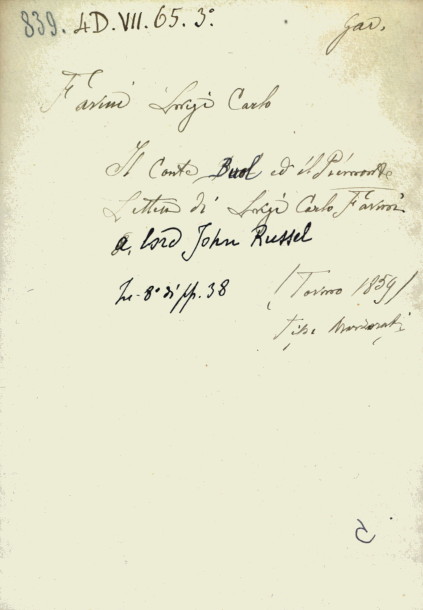 839. 4D. VII. 65. 3º. Gar.
Farini Luigi Carlo
Il Conte Buol ed il Piemonte
Lettera di Luigi Carlo Farini
a lord John Russel
In-8º di pp. 38 (Torino 1859)
Tip. Marzorati